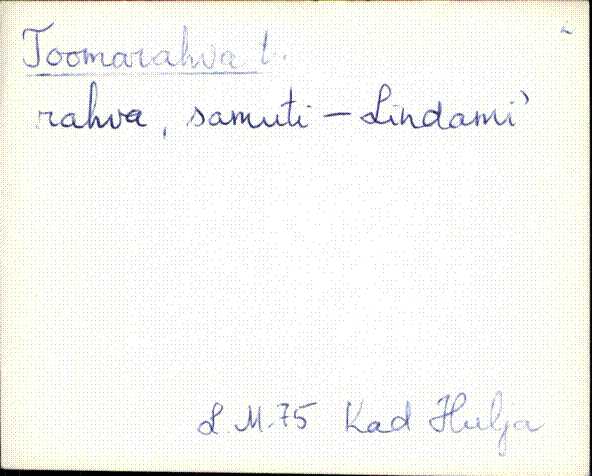 Toomarahva t.
rahva, samuti - Lindami
L.M.75 Kad Hulja